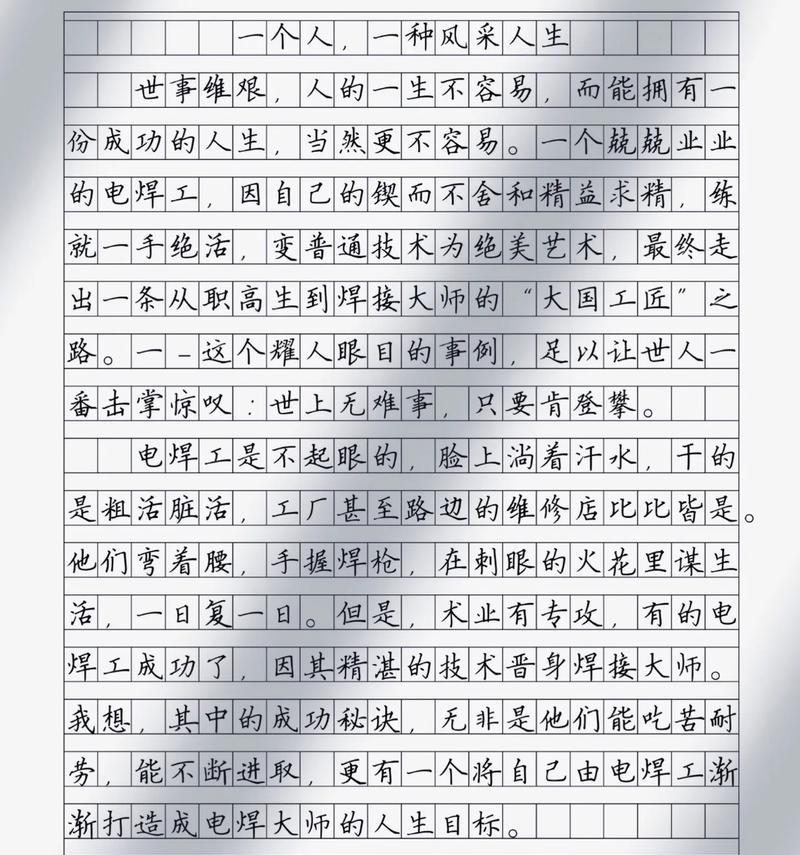 一个人，一种风采人生
世事维艰，人的一生不容易，而能拥有一
份成功的人生，当然更不容易。一个兢兢业业
的电焊工，因自己的锲而不舍和精益求精，练
就一手绝活，变普通技术为绝美艺术，最终走
出一条从职高生到焊接大师的“大国工匠”之
路。一–这个耀人眼目的事例，足以让世人一
番击掌惊叹：世上无难事，只要肯登攀。
电焊工是不起眼的，脸上淌着汗水，干的
是粗活脏活，工厂甚至路边的维修店比比皆是。
他们弯着腰，手握焊枪，在刺眼的火花里谋生
活，一日复一日。但是，术业有专攻，有的电
焊工成功了，因其精湛的技术晋身焊接大师。
我想，其中的成功秘诀，无非是他们能吃苦耐
劳，能不断进取，更有一个将自己由电焊工渐
渐打造成电焊大师的人生目标。